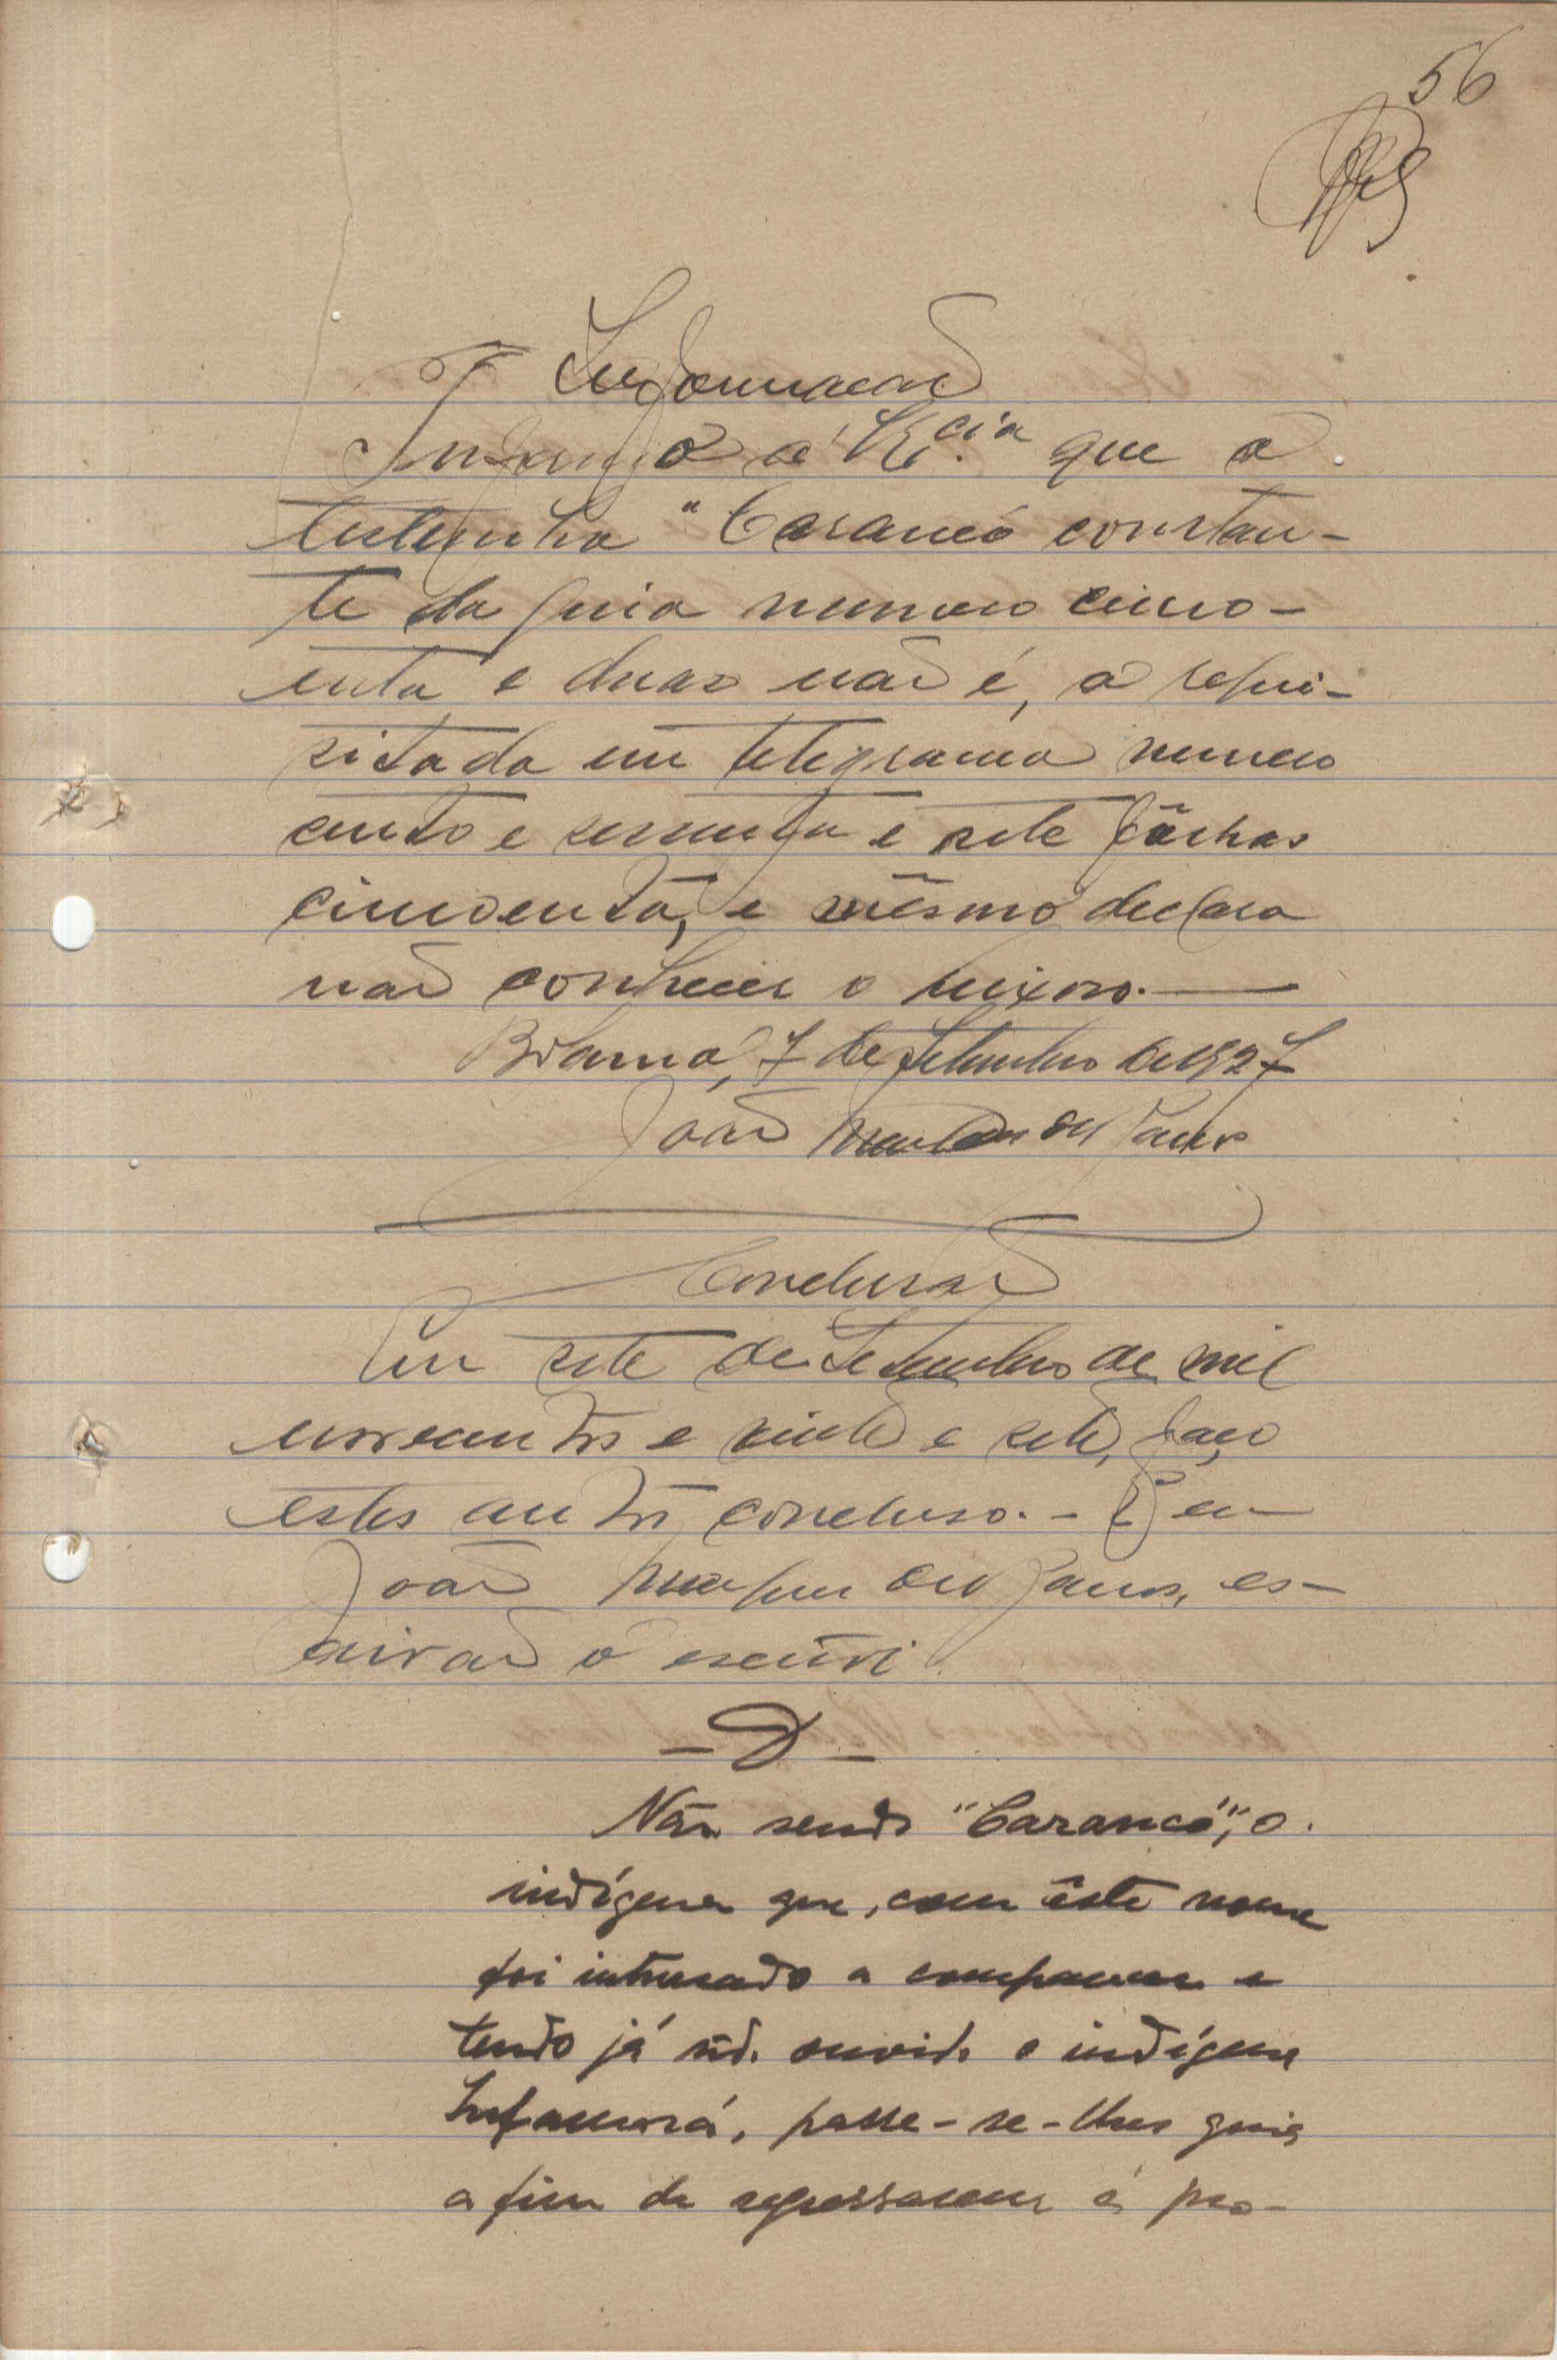 56
Informação
Informo a V. Ex.cia que a
testemunha "Carancó constan-
te da guia numero cinco-
enta e duas não é, a requi-
sitada em telegrama numero
cento e sessenta e sete fôlhas
cincoenta, e mêsmo declara
não conhecer o queixoso.
Bolama, 7 de Setembro de 1927
João
Conclusão
Em sete de Setembro de mil
novecentos e vinte e sete, faço
estes autos concluso. - E eu
João es-
crivão o escrevi
- D -
Não sendo "Carancó", o
indígena que, com êste nome
foi intimado a comparecer e
tendo já sido ouvido o indígena
passe-se-lhes guia
a fim de regressarem á pro-